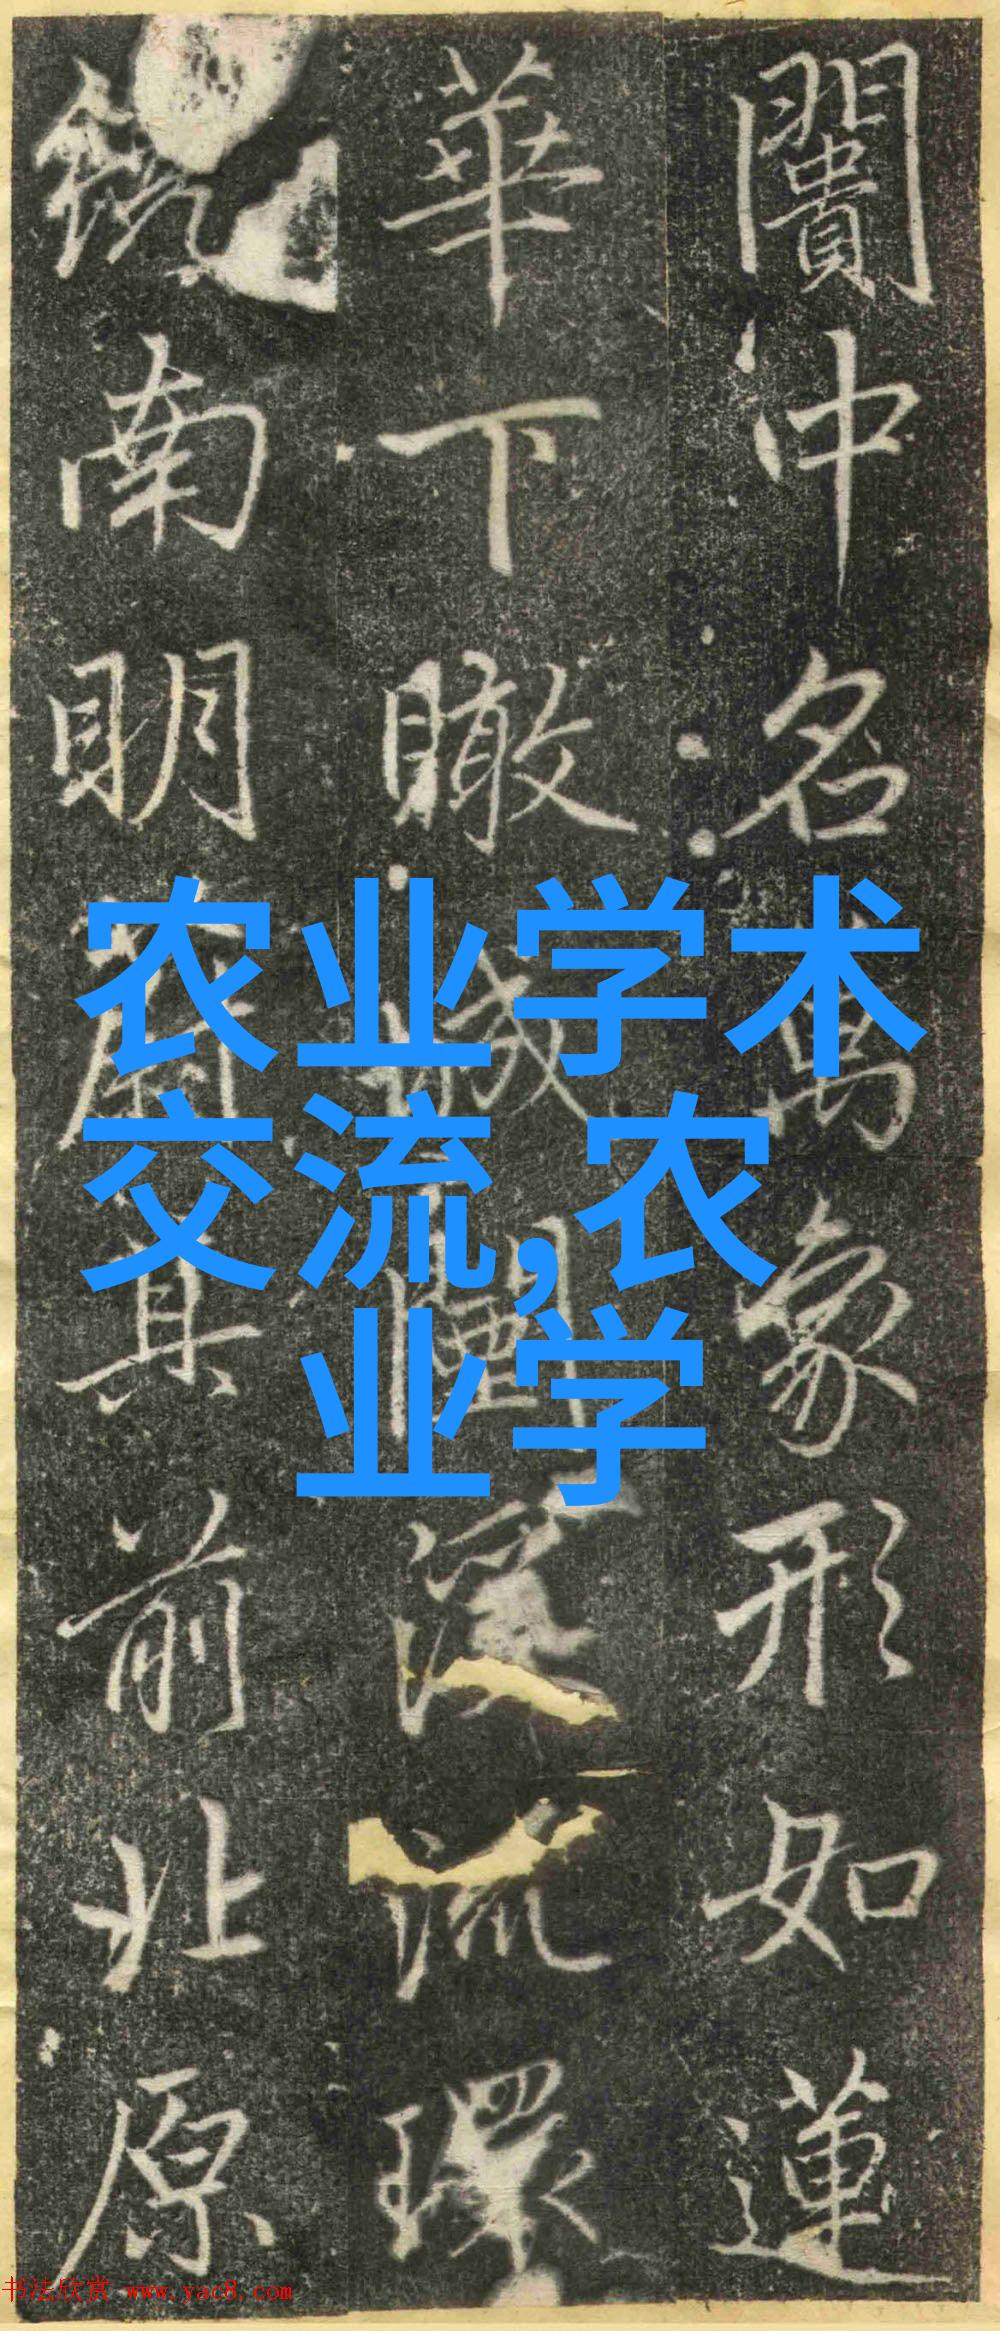 闠冲名萬象形如蓮
華下瞰城闉流環
南明其前北原
农业学术
交流,农
业学
书法欣赏 www.yac8.com